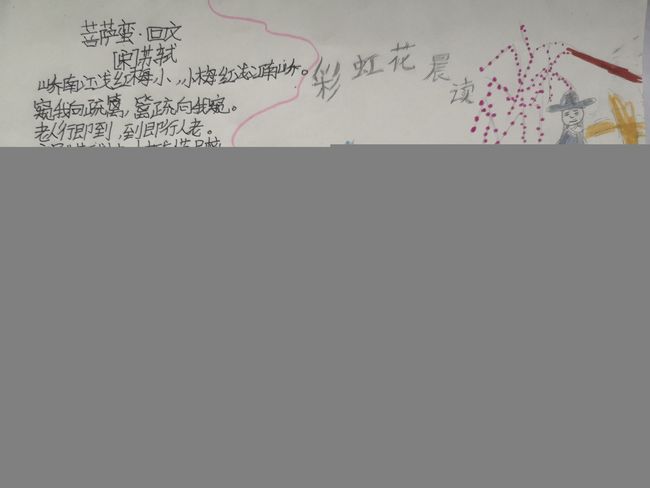 菩萨蛮·回文
[宋]苏轼
峤南江浅红梅小、小梅红浅江南峤。
窥我向疏篱，篱疏向我窥。
老人行即到，到即行人老。
彩虹花晨读